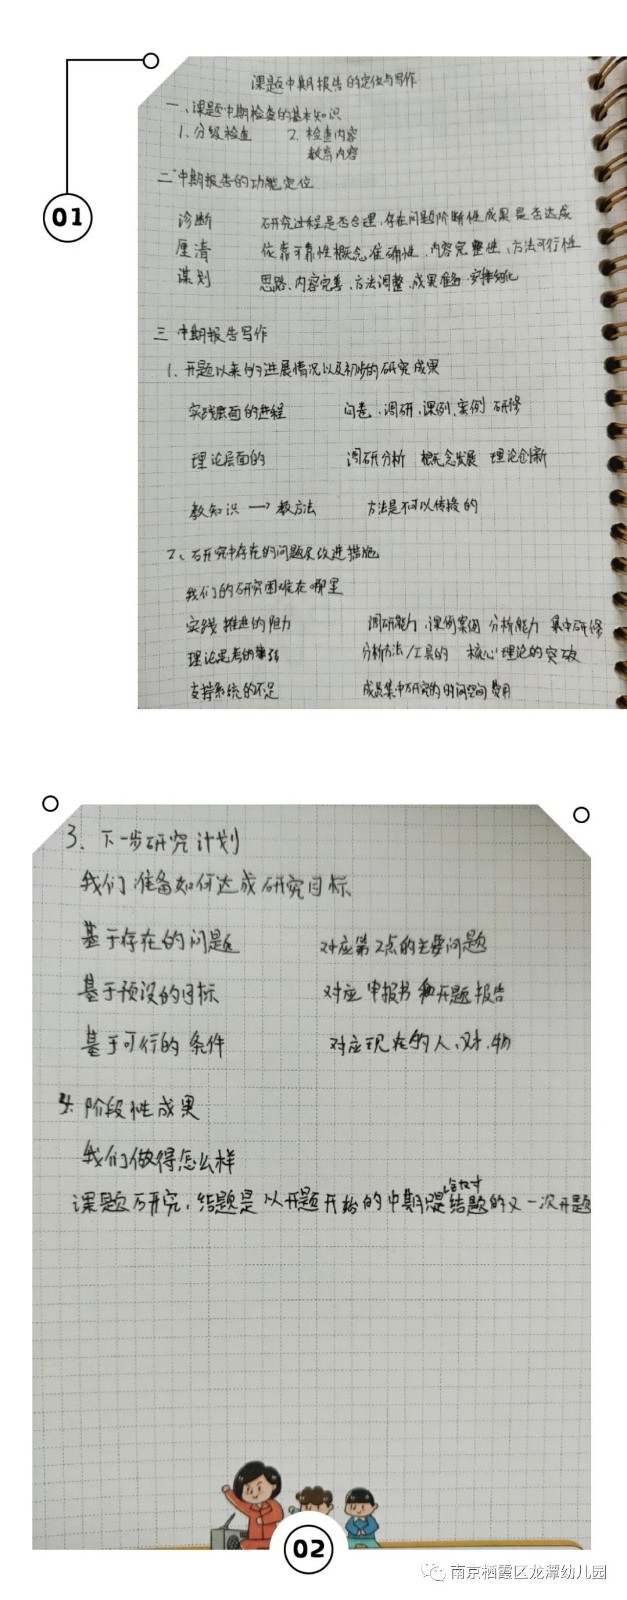 课题中期报告的定位与写作
一、课题中期检查的基本知识
1、分级检查 2、检查内容
教育内容
二 中期报告的功能定位
诊断 研究过程是否合理、存在问题阶断性成果是否达成
厘清 依靠可靠性概念准确性、内容完整性、方法可行性
谋划 思路、内容完善、方法调整、成果准备 安排细化
三 中期报告写作
1、开题以来的进展情况以及初步的研究成果
实践层面的进程 问卷、调研、课例、案例 研修
理论层面的 调研分析 概念发展 理论创新
教知识 → 教方法 方法是不可以传授的
2、研究中存在的问题及改进措施
我们的研究困难在哪里
实践推进的阻力 调研能力、课例案例 分析能力 集中研修
理论思考的薄弱 分析方法/工具的 核心理论的突破
支持系统的不足 成员集中研究的时间空间费用
01
3、下一步研究计划
我们准备如何达成研究目标
基于存在的问题 对应第2点的主要问题
基于预设的目标 对应申报书和开题报告
基于可行的条件 对应现在的人、财、物
4、阶段性成果
我们做得怎么样
课题研究,结题是以开题开始的中期是结题的又一次开题
02
南京栖霞区龙潭幼儿园